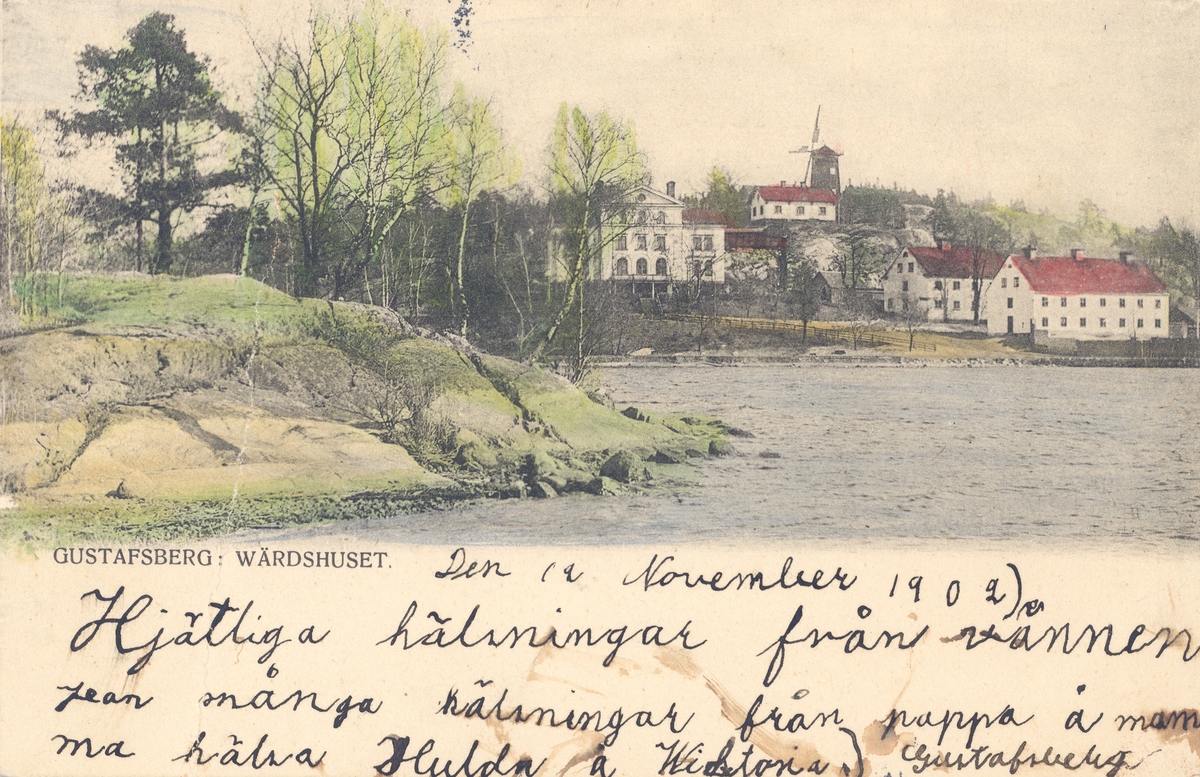 GUSTAFSBERG: WÄRDSHUSET.
Den 12 November 1902
Hjätliga hälsningar från vännen
jean många hälsningar från pappa å mam
ma hälsa Hulda å Wiktoria
Gustafsberg